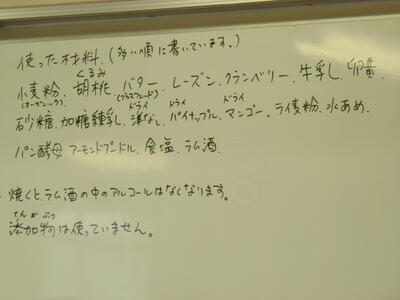 使った材料.(多い順に書いています。)
くるみ
小麦粉. 胡桃. バター. レーズン. クランベリー. 牛乳. 卵黄.
(オーガニック) (グラスフェッド)
ドライ ドライ ドライ
砂糖. 加糖練乳. 洋なし. パイナップル. マンゴー. ライ麦粉. 水あめ.
パン酵母 アーモンドプードル. 食塩. ラム酒.
焼くと、ラム酒の中のアルコールはなくなります。
てんかぶつ
添加物は使っていません。